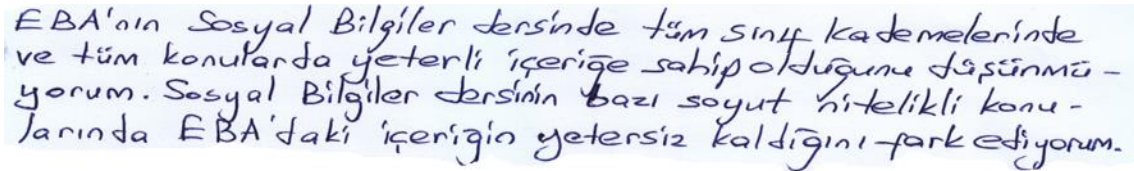 EBA'nın Sosyal Bilgiler dersinde tüm sınıf kademelerinde
ve tüm konularda yeterli içeriğe sahip olduğunu düşünmü-
yorum. Sosyal Bilgiler dersinin bazı soyut nitelikli konu-
larında EBA'daki içeriğin yetersiz kaldığını fark ediyorum.